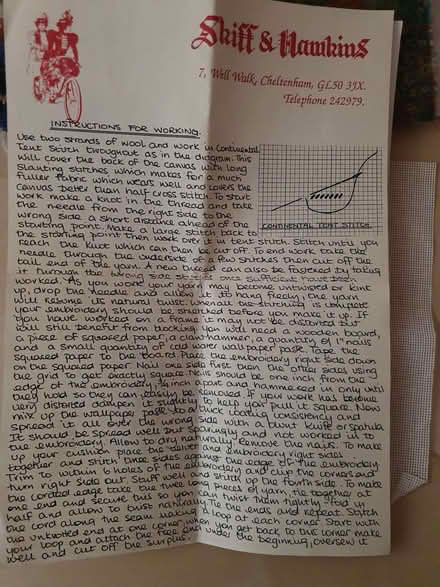 Skiff & Hawkins
7, Well Walk, Cheltenham, GL50 3JX.
Telephone 242979.
INSTRUCTIONS FOR WORKING.
Use two strands of wool and work in Continental
Tent Stitch throughout as in the diagram. This
will cover the back of the canvas with long
slanting stitches which makes for a much
fuller fabric which wears well and covers the
canvas better than half cross stitch. To start
work make a knot in the thread and take
the needle from the right side to the
wrong side a short distance ahead of the
starting point. Make a large stitch back to
the starting point then work over it in tent stitch. Stitch until you
reach the knot which can then be cut off. To end work take the
needle through the underside of a few stitches then cut off the
tail end of the yarn. A new thread can also be fastened by taking
it through the wrong side once sufficient have been
worked. As you work your yarn may become untwisted or kink
up, drop the needle and allow it to hang freely, the yarn
will resume its natural twist. When all the stitching is complete
your embroidery should be stretched before you make it up. If
you have worked on a frame it may not be distorted but
will still benefit from blocking. You will need a wooden board,
a piece of squared paper, a claw hammer, a quantity of 1" nails
and a small quantity of cold water wallpaper paste. Tape the
squared paper to the board. Place the embroidery right side down
on the squared paper. Nail one side first then the other sides using
the grid to get exactly square. Nails should be one inch from the
edge of the embroidery, ¾ inch apart and hammered in only until
they hold so they can easily be removed. If your work has become
very distorted dampen it slightly to help you pull it square. Now
mix up the wallpaper paste to a thick coating consistency and
spread it all over the wrong side with a blunt knife or spatula
It should be spread well but sparingly and not worked in to
the embroidery. Allow to dry naturally. Remove the nails. To make
up your cushion place the velvet and embroidery right sides
together and stitch three sides against the edge of the embroidery
Trim to within 6 holes of the embroidery and clip the corners and
turn right side out. Stuff well and stitch up the fourth side. To make
the corded edge take the two long pieces of yarn, tie together at
one end and secure this so you can twist them tightly. Fold in
half and allow to twist naturally. Tie the ends and repeat. Stitch
the cord along the seam making a loop at each corner. Start with
the unknotted end at one corner, when you get back to this corner make
your loop and attach the free end under the beginning, oversew it
well and cut off the surplus.
CONTINENTAL TENT STITCH